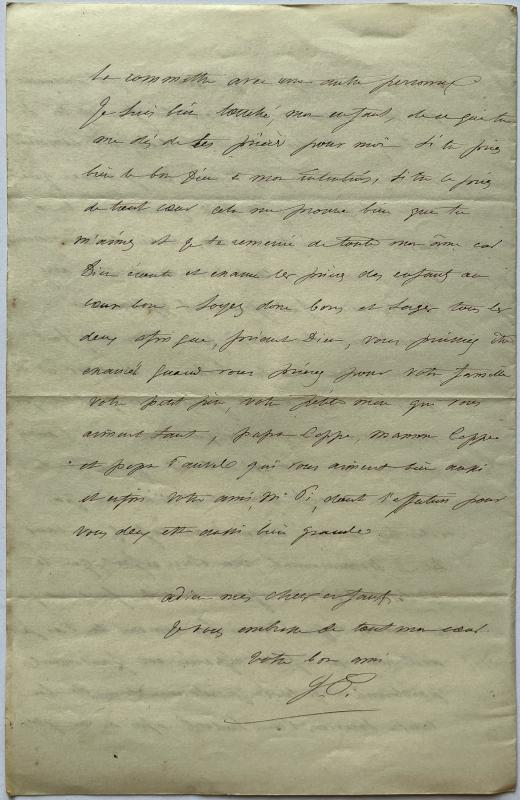 la commettre avec une autre personne
Je suis bien touché, mon enfant, de ce que tu
me dis de tes prières pour moi. Si tu pries
bien le bon Dieu à mon intention, si tu le pries
de tout cœur cela me prouve bien que tu
m'aimes et je te remercie de toute mon âme car
Dieu écoute et exauce les prières des enfants au
cœur bon – Soyez donc bons et sages tous les
deux afin que, priant Dieu, vous puissiez être
exaucés quand vous prierez pour votre famille
votre petit père, votre petite mère qui vous
aiment tant, papa Coppe, maman Coppe
et papa qui vous aiment bien aussi
et enfin votre ami, Mr Pi, dont l'affection pour
vous deux est aussi bien grande
adieu mes chers enfants.
Je vous embrasse de tout mon cœur
Votre bon ami